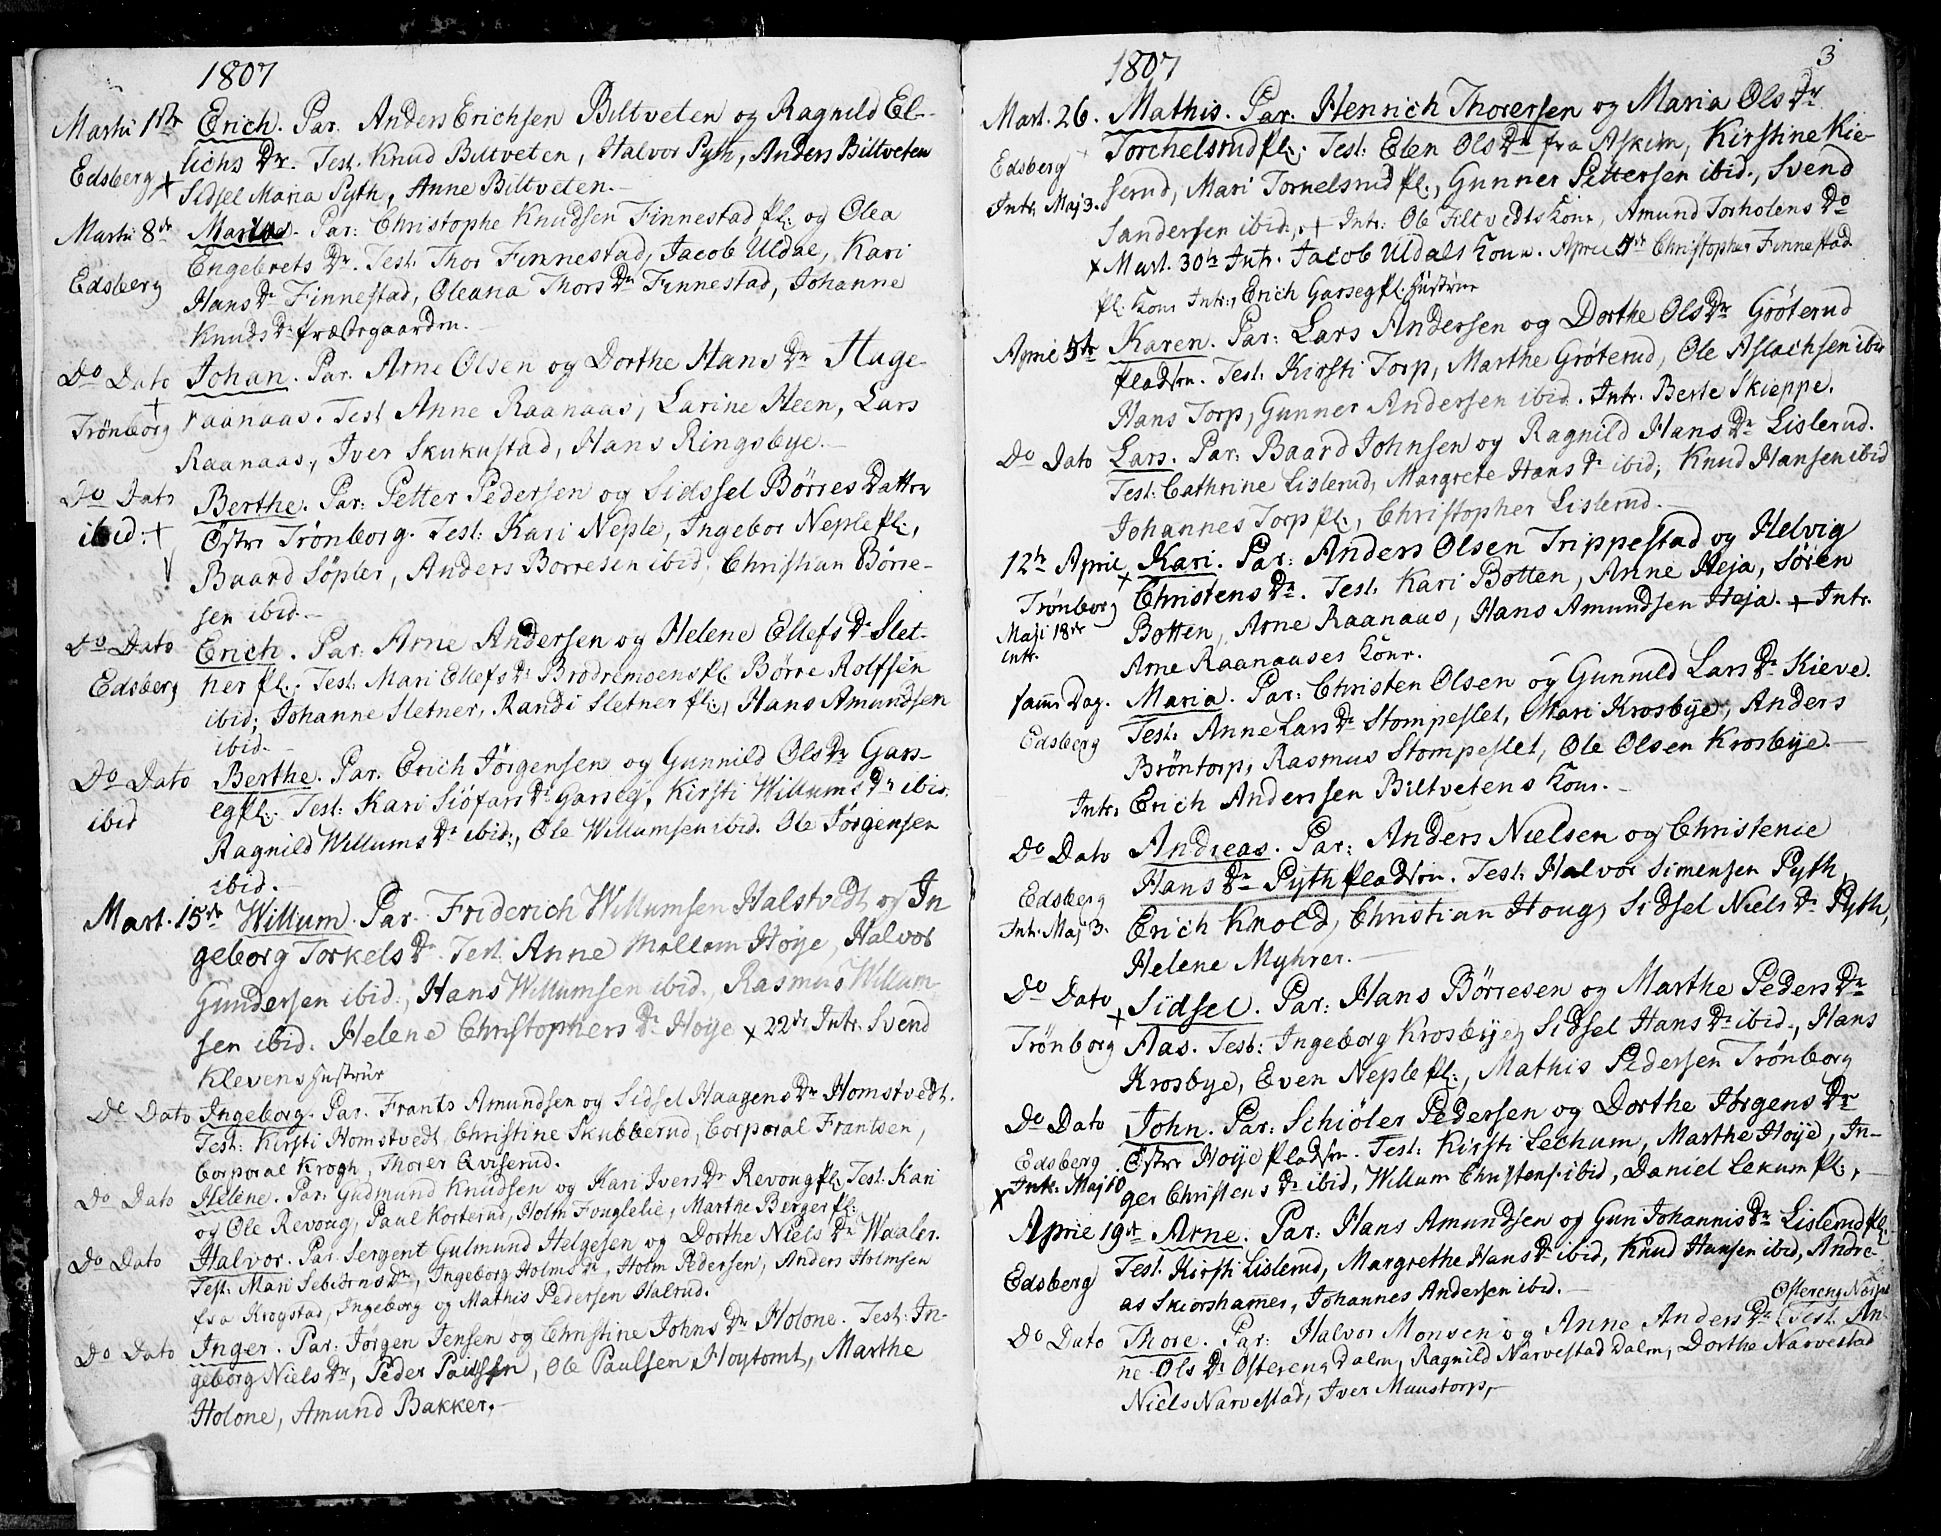 1807
Martii 1ste Erich. Par. Anders Erichsen Biltveten og Ragnild El-
Edsberg + lichs Dr. Test. Knud Biltveten, Halvor Pyth, Anders Biltveten
Sidsel Maria Pyth, Anne Biltveten.-
Martii 8de Par: Christophe Knudsen Finnestad pl: og Olea
Engebrets Dr. Test. Thor Finnestad, Jacob Uldal, Kari
Edsberg Hans Dr Finnestad, Oleana Thors Dr Finnestad, Johanne
Knuds Dr
Do Dato Johan. Par. Arne Olsen og Dorthe Hans Dr Huge-
+ raanaas. Test Anne Raanaas, Larine Heen, Lars
Trönborg Raanaas, Iver Skukustad, Hans Ringsbye.-
Do Dato Berthe. Par: Petter Pedersen og Sidssel Börres Datter
ibid. + Östre Trönborg. Test: Kari Neple, Ingebor Neple pl:,
Baard Söpler, Anders Borresen ibid. Christian Börre-
sen ibid.-
Do Dato Erich. Par: Arne Andersen og Helene Ellefs Dr Slet-
Edsberg ner pl: Test: Mari Ellefs Dr Brödremoens pl. Börre Rolfsen
ibid; Johanne Sletner, Randi Sletner pl:, Hans Amundsen
ibid.-
Do Dato Berthe. Par. Erich Jörgensen og Gunnild Ols Dr Gars-
ibid eg pl: Test: Kari Siöfars Dr Garseg, Kirsti Willums Dr ibid.
Ragnild Willums Dr ibid:, Ole Willumsen ibid. Ole Jörgensen
ibid.-
Mart. 15de Willum. Par. Friderich Willumsen Halstvedt og In
geborg Torkels Dr. Test. Anne Mellem Höije, Halvor
Gundersen ibid:, Hans Willumsen ibid., Rasmus Willum-
sen ibid. Helene Christophers Dr Höije x 22de Intr. Svend
Klevens Hustrue
Do Dato Ingeborg. Par. Frants Amundsen og Sidsel Haagens Dr Homstvedt.
Test: Kirsti Homstvedt, Christine Skubberud, Corporal Frantzen,
Corporal Krogh, Thorer Qviserud.
Do Dato Helene. Par: Gudmund Knudsen og Kari Ivers Dr Revoug pl: Test: Kari
og Ole Revoug, Paul Korterud, Holm Fouglelie, Marthe Berger pl:
Do Dato Halvor. Par. Sergent Gulmund Helgesen og Dorthe Niels Dr Waaler.
Test: Mari Sebiörns Dr, Ingeborg Holms Dr, Holm Pedersen, Anders Holmsen
fra Krogstad, Ingeborg og Mathis Pedersen Halrud.
Do Dato Inger. Par: Jörgen Jensen og Christine Johns Dr Holone. Test: In-
geborg Niels Dr, Peder Paulsen, Ole Paulsen Hoytomt, Marthe
Holone, Amund Bakker.-
1807
3
Mart. 26. Mathis. Par. Henrich Thorersen og Maria Ols Dr
Edsberg + Torchelsrud pl: Test: Elen Ols Dr fra Askim, Kirstine Kie-
Intr. Maj 3. serud, Mari Tornelsrud pl:, Gunner Pettersen ibid:, Svend
Sandersen ibid:, + Intr: Ole Filtvedts Kone, Amund Torholens Do
x Mart. 30te Intr. Jacob Uldals Kone. Aprie 5te Christopher Finnestad
pl: Kone Intr:, Erich Garseg pl: Hustrue
Aprie 5te Karen. Par: Lars Andersen og Dorthe Ols Dr Gröterud
pladsen. Test: Kirsti Torp, Marthe Gröterud, Ole Aslachsen ibid
Hans Torp, Gunner Andersen ibid. Intr. Berte Skieppe.
Do Dato Lars. Par: Baard Johnsen og Ragnild Hans Dr Lislerud.
Test: Cathrine Lislerud, Margrete Hans Dr ibid; Knud Hansen ibid
Johannes Torp pl:, Christopher Lislerud.
12te Aprie + Kari. Par: Anders Olsen Trippestad og Helvig
Trönborg Christens Dr. Test. Kari Botten, Anne Heja, Sören
Maji 18de Botten, Arne Raanaas, Hans Amundsen Heja. + Intr.
intr. Arne Raanaases Kone.
samme Dag. Maria. Par: Christen Olsen og Gunnild Lars Dr Kieve.
Edsberg Test: Anne Lars Dr Stompeslet, Mari Krosbye, Anders
Bröntorp, Rasmus Stompeslet, Ole Olsen Krosbye.-
Intr: Erich Anderssen Biltvetens Kone.-
Do Dato Andreas. Par: Anders Nielsen og Christenie
Edsberg Hans Dr Pyth pladsen. Test: Halvor Simensen Pyth,
Intr. Maj 3. Erich Knold, Christian Houg, Sidsel Niels Dr Pyth,
Helene Myhrer.-
Do Dato + Sidsel. Par: Hans Börresen og Marthe Peders Dr
Trönborg Aas. Test: Ingeborg Krosbye, Sidsel Hans Dr ibid., Hans
Krosbye, Even Neple pl:, Mathis Pedersen Trönborg
Do Dato John. Par: Schiöler Pedersen og Dorthe Jörgens Dr
Edsberg Östre Höije pladsen. Test: Kirsti Lechum, Marthe Höije, In-
x Intr: Maj 10 ger Christens Dr ibid, Willum Christens: ibid, Daniel Lekum pl:,
Aprie 19de Arne. Par: Hans Amundsen og Guri Johannis Dr Lislerud pl:
Edsberg Test. Kirsti Lislerud, Margrethe Hans Dr ibid, Knud Hansen ibid, Andre-
as Skiorshamer, Johannes Andersen ibid.-
Ostereng
Do Dato Thore. Par: Halvor Monsen og Anne Anders Dr Test. An-
ne Ols Dr Ostereng Dalen, Ragnild Narvestad Dalen, Dorthe Narvestad
Niels Narvestad, Iver Muustorp,-